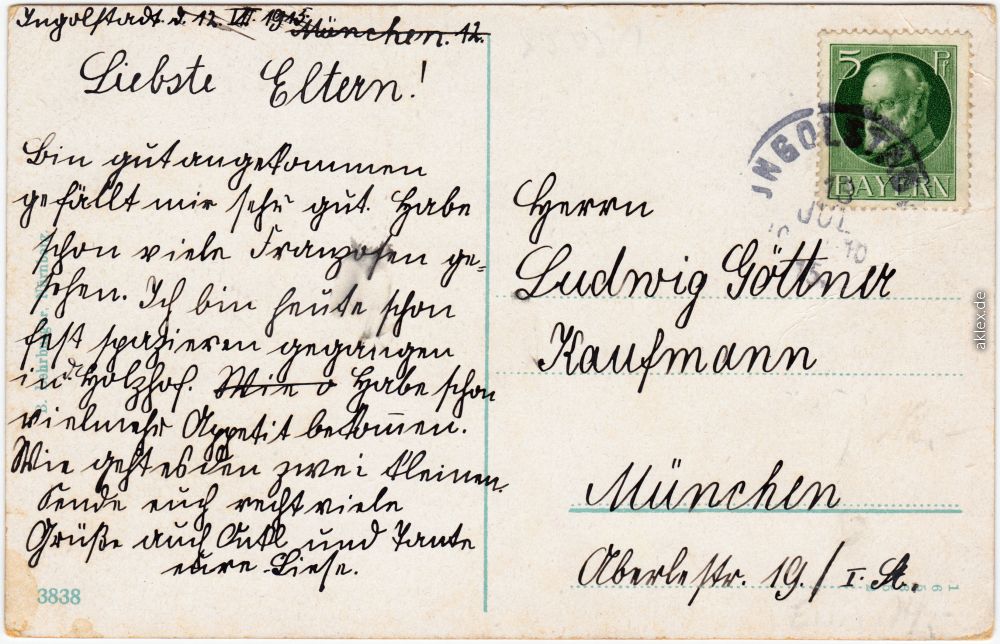 Ingolstadt d. 12. VII. 1915.
München. 12.
Liebste Eltern!
Bin gut angekommen
gefällt mir sehr gut. Habe
schon viele Franzosen ge-
sehen. Ich bin heute schon
fest spazieren gegangen
in d. Holzhof. Wie o Habe schon
vielmehr Appetit bekommen.
Wie geht es den zwei Kleinen.
Sende euch recht viele
Grüße auch Onkl und Tante
eure Liese.
3838
5 Pf
BAYERN
INGOLSTADT
13
JUL
10
15
Herrn
Ludwig Göttner
Kaufmann
München
Aberlestr. 19./I. St.
aklex.de